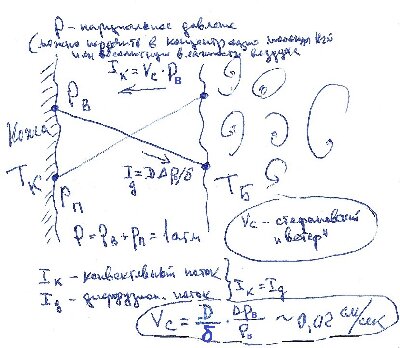 P - парциальное давление
(можно перевести в концентрацию молекул H₂O
или абсолютную влажность воздуха
I_K = V_c · P_B
P_B
Кожа
T_K
P_П
I_g = D ΔP_B/δ
T_Б
P = P_B + P_П = 1 атм
V_c - стефановский
"ветер"
I_K - конвективный поток
I_g - диффузион. поток
I_K = I_g
V_c = D/δ · ΔP_B/P_B ~ 0,02 см/сек